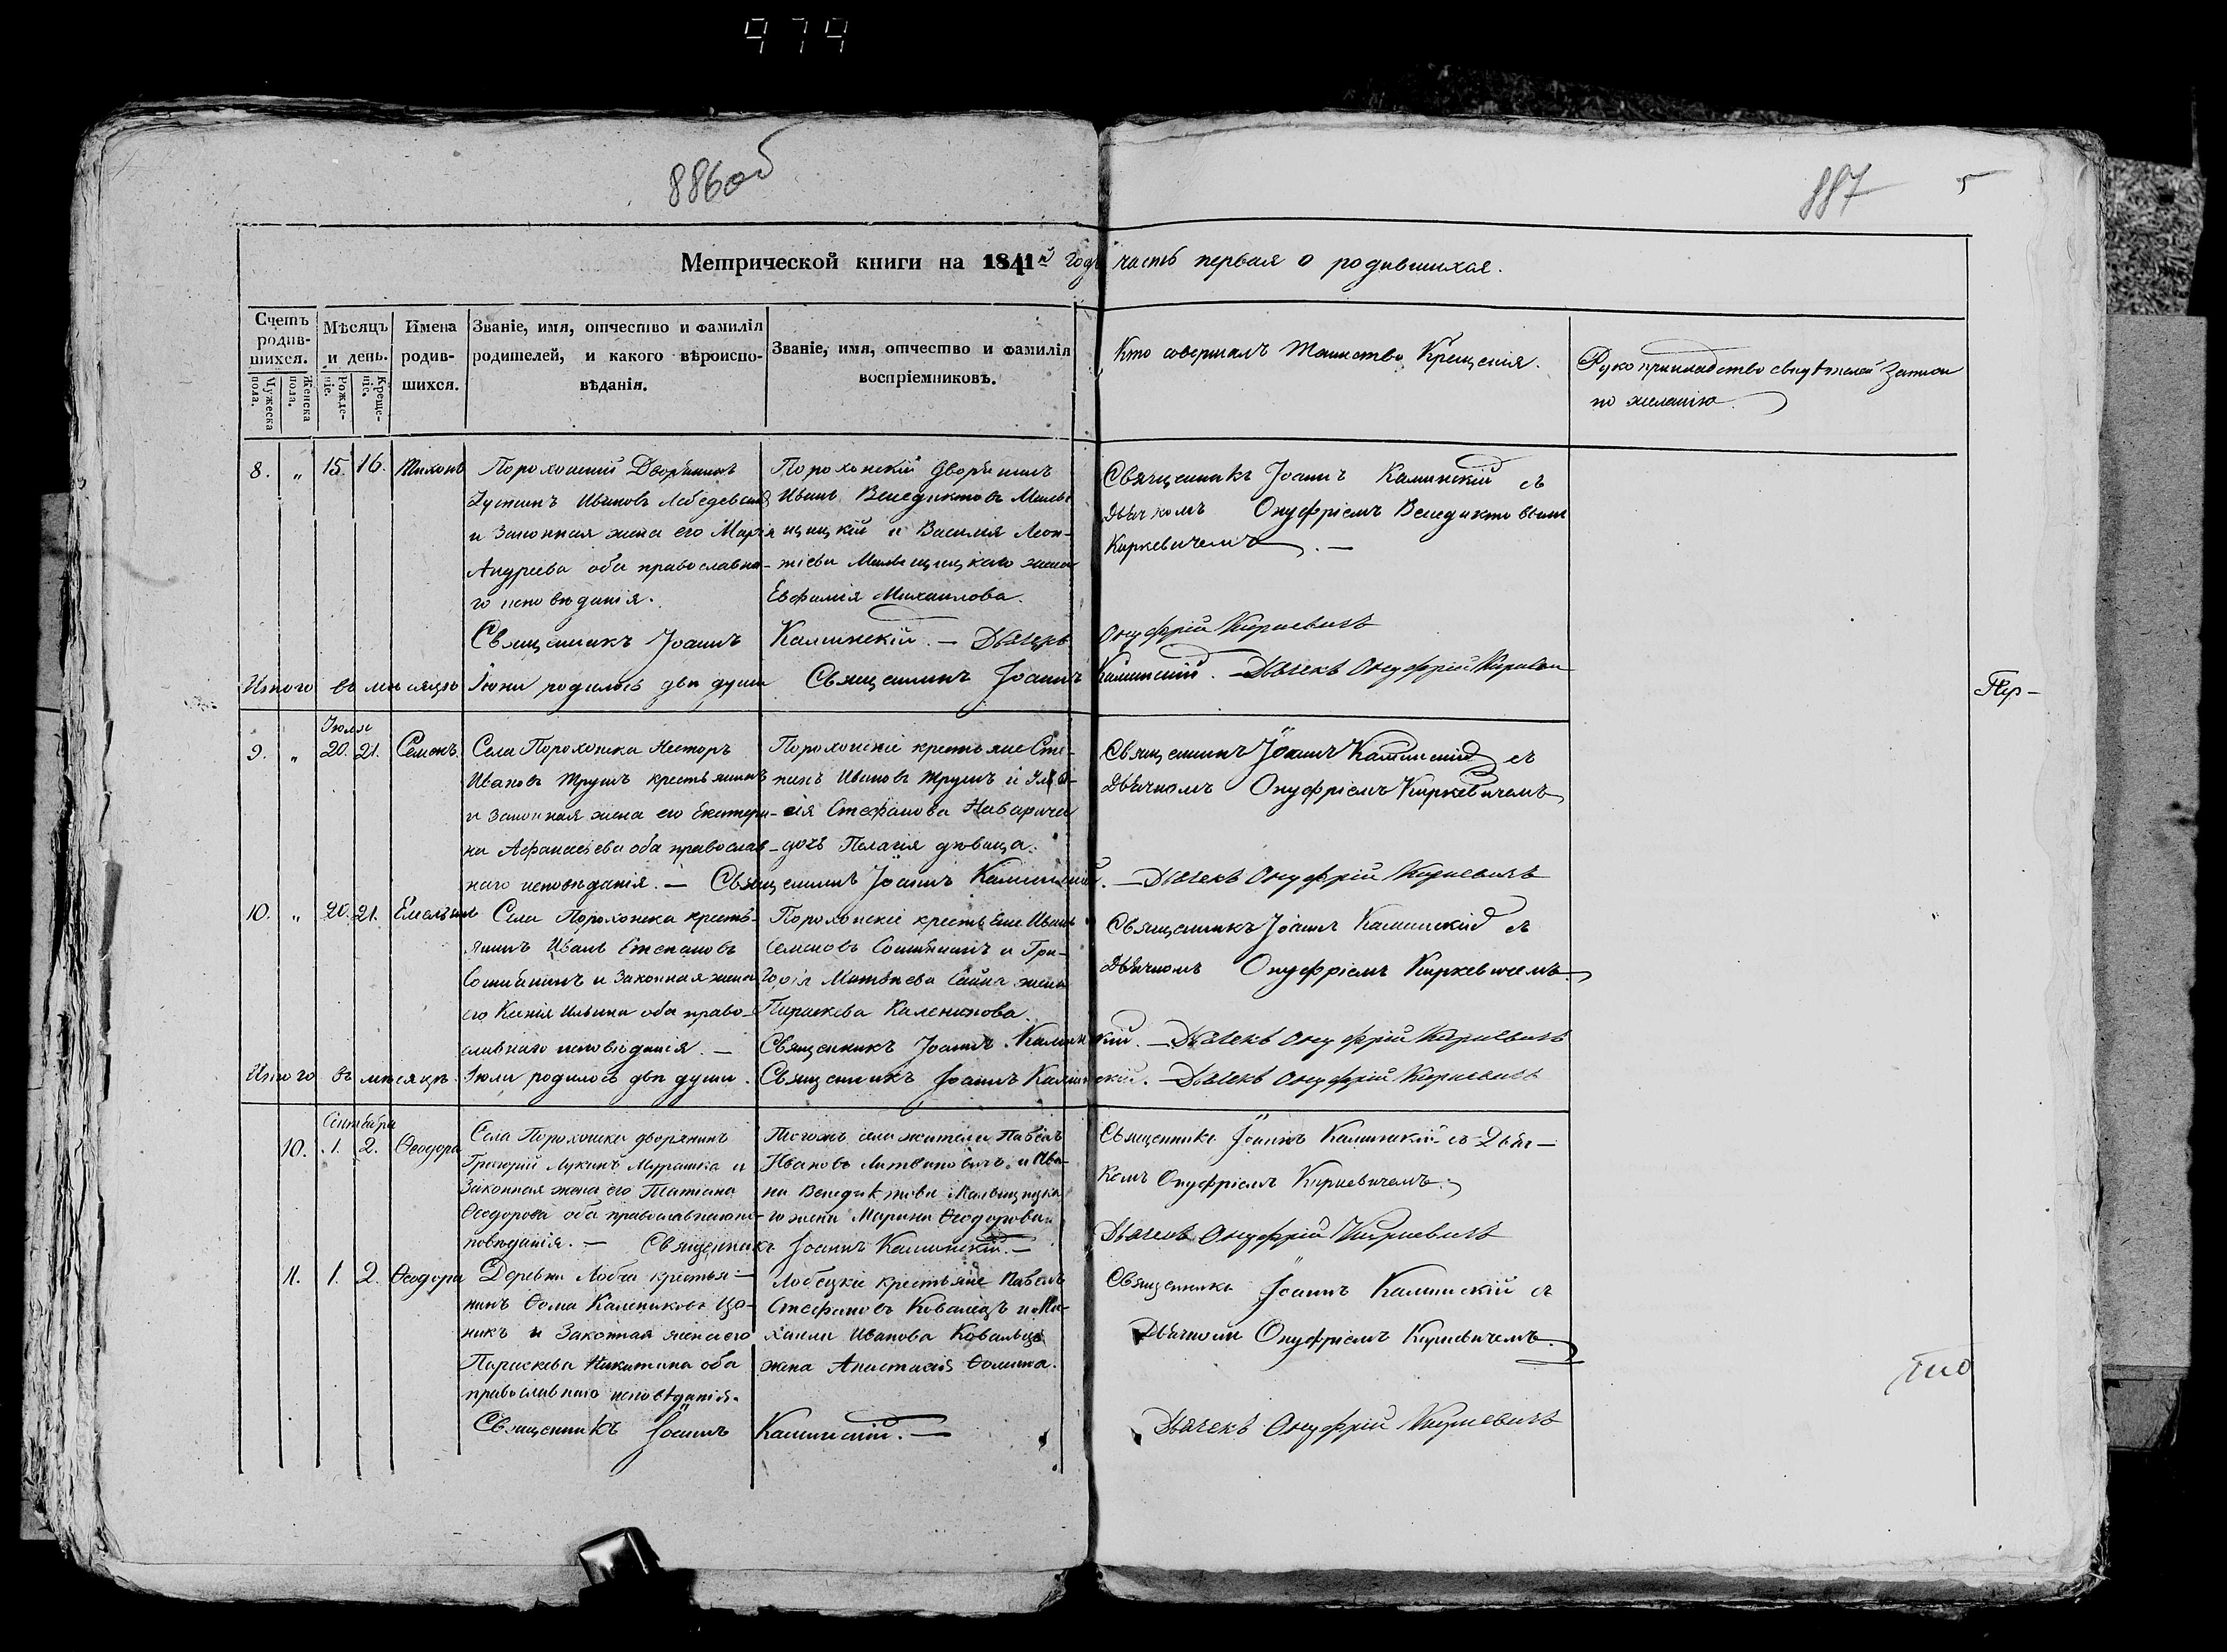 979
886об
887
5
Метрической книги на 1841й годъ часть первая о родившихся.
Счетъ родив-шихся.
Мужеска пола.
Женска пола.
Мѣсяцъ и день.
Рожде-ніе.
Креще-ніе.
Имена родив-шихся.
Званіе, имя, отчество и фамилія
родителей, и какого вѣроиспо-
вѣданія.
Званіе, имя, отчество и фамилія
воспріемниковъ.
Кто совершалъ таинство Крещенія.
Рукоприкладство свидѣтелей записи
по желанію.
8. „ 15. 16. Тихонъ
Порохонскій Дворянинъ
Іустинъ Ивановъ Лебедевскій
и Законная жена его Марія
Андреева оба православна-
го исповѣданія.
Порохонскій дворянинъ
Иванъ Венедиктовъ Мальв
щицкій и Василія Леон-
тіева Мальщицкаго жена
Евфимія Михаилова.
Священникъ Іоаннъ Калинскій съ
Дьячкомъ Онуфріемъ Венедиктовымъ
Киркевичемъ. —
Священникъ Іоаннъ Калинскій. — Дьячекъ Онуфрій Киркевичъ
Итого въ мѣсяцѣ Іюни родилось двѣ души Священникъ Іоаннъ Калинскій. — Дьячекъ Онуфрій
Пер-
Іюля
9. „ 20. 21. Семенъ
Села Порохонска Несторъ
Ивановъ Трушъ крестьянинъ
и законная жена его Екатери-
на Афанасіева оба православ-
наго исповѣданія. —
Порохонскіе крестьяне Сте-
панъ Ивановъ Трушъ и
сія Стефанова
дочь Пелагія дѣвица.
Священникъ Іоаннъ Калинскій съ
Дьячкомъ Онуфріемъ Киркевичемъ
Священникъ Іоаннъ Калинскій. — Дьячекъ Онуфрій Киркевичъ
10. „ 20. 21. Емельянъ
Села Порохонска кресть-
янинъ Иванъ Степановъ
и Законная жена
его Ксенія Ильина оба право-
славнаго исповѣданія. —
Порохонскіе крестьяне Иванъ
Семеновъ и Гри-
горія Матвѣева жена
Параскева Каленикова.
Священникъ Іоаннъ Калинскій съ
Дьячкомъ Онуфріемъ Киркевичемъ
Священникъ Іоаннъ Калинскій. — Дьячекъ Онуфрій Киркевичъ
Итого въ мѣсяцѣ Іюли родилось двѣ души. Священникъ Іоаннъ Калинскій. — Дьячекъ Онуфрій Киркевичъ
Сентября
10. 1. 2. Ѳеодора
Села Порохонска дворянинъ
Григорій Лукинъ Мурашка и
Законная жена его Татіана
Ѳеодорова оба православнаго ис-
повѣданія. —
Тогожъ села жители Павелъ
Ивановъ Литвиновичъ и Ива-
на Венедиктова Мальщицка
го жена Марина Ѳеодорова
Священникъ Іоаннъ Калинскій съ Дьяч-
комъ Онуфріемъ Киркевичемъ.
Священникъ Іоаннъ Калинскій. —
Дьячекъ Онуфрій Киркевичъ
11. 1. 2. Ѳеодора
Деревни Лобчи крестья-
нинъ Ѳома Калениковъ Ца-
никъ и Законная жена его
Параскева Никитина оба
православнаго исповѣданія.
Лобецкіе крестьяне Павелъ
Стефановъ Ковалецъ и Ми-
хаила Иванова Ковальца
жена Анастасія Ѳомина.
Священникъ Іоаннъ Калинскій съ
Дьячкомъ Онуфріемъ Киркевичемъ.
Священникъ Іоаннъ Калинскій. —
Дьячекъ Онуфрій Киркевичъ